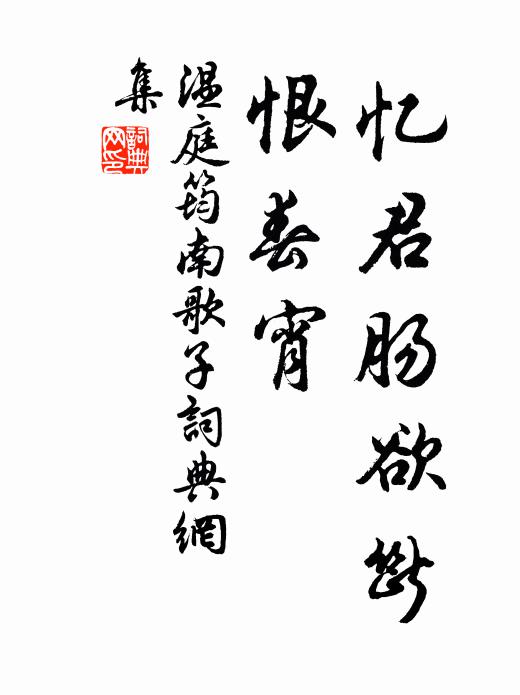 忆君肠欲断
恨春宵
温庭筠南歌子詞典網
集
詞典
网印